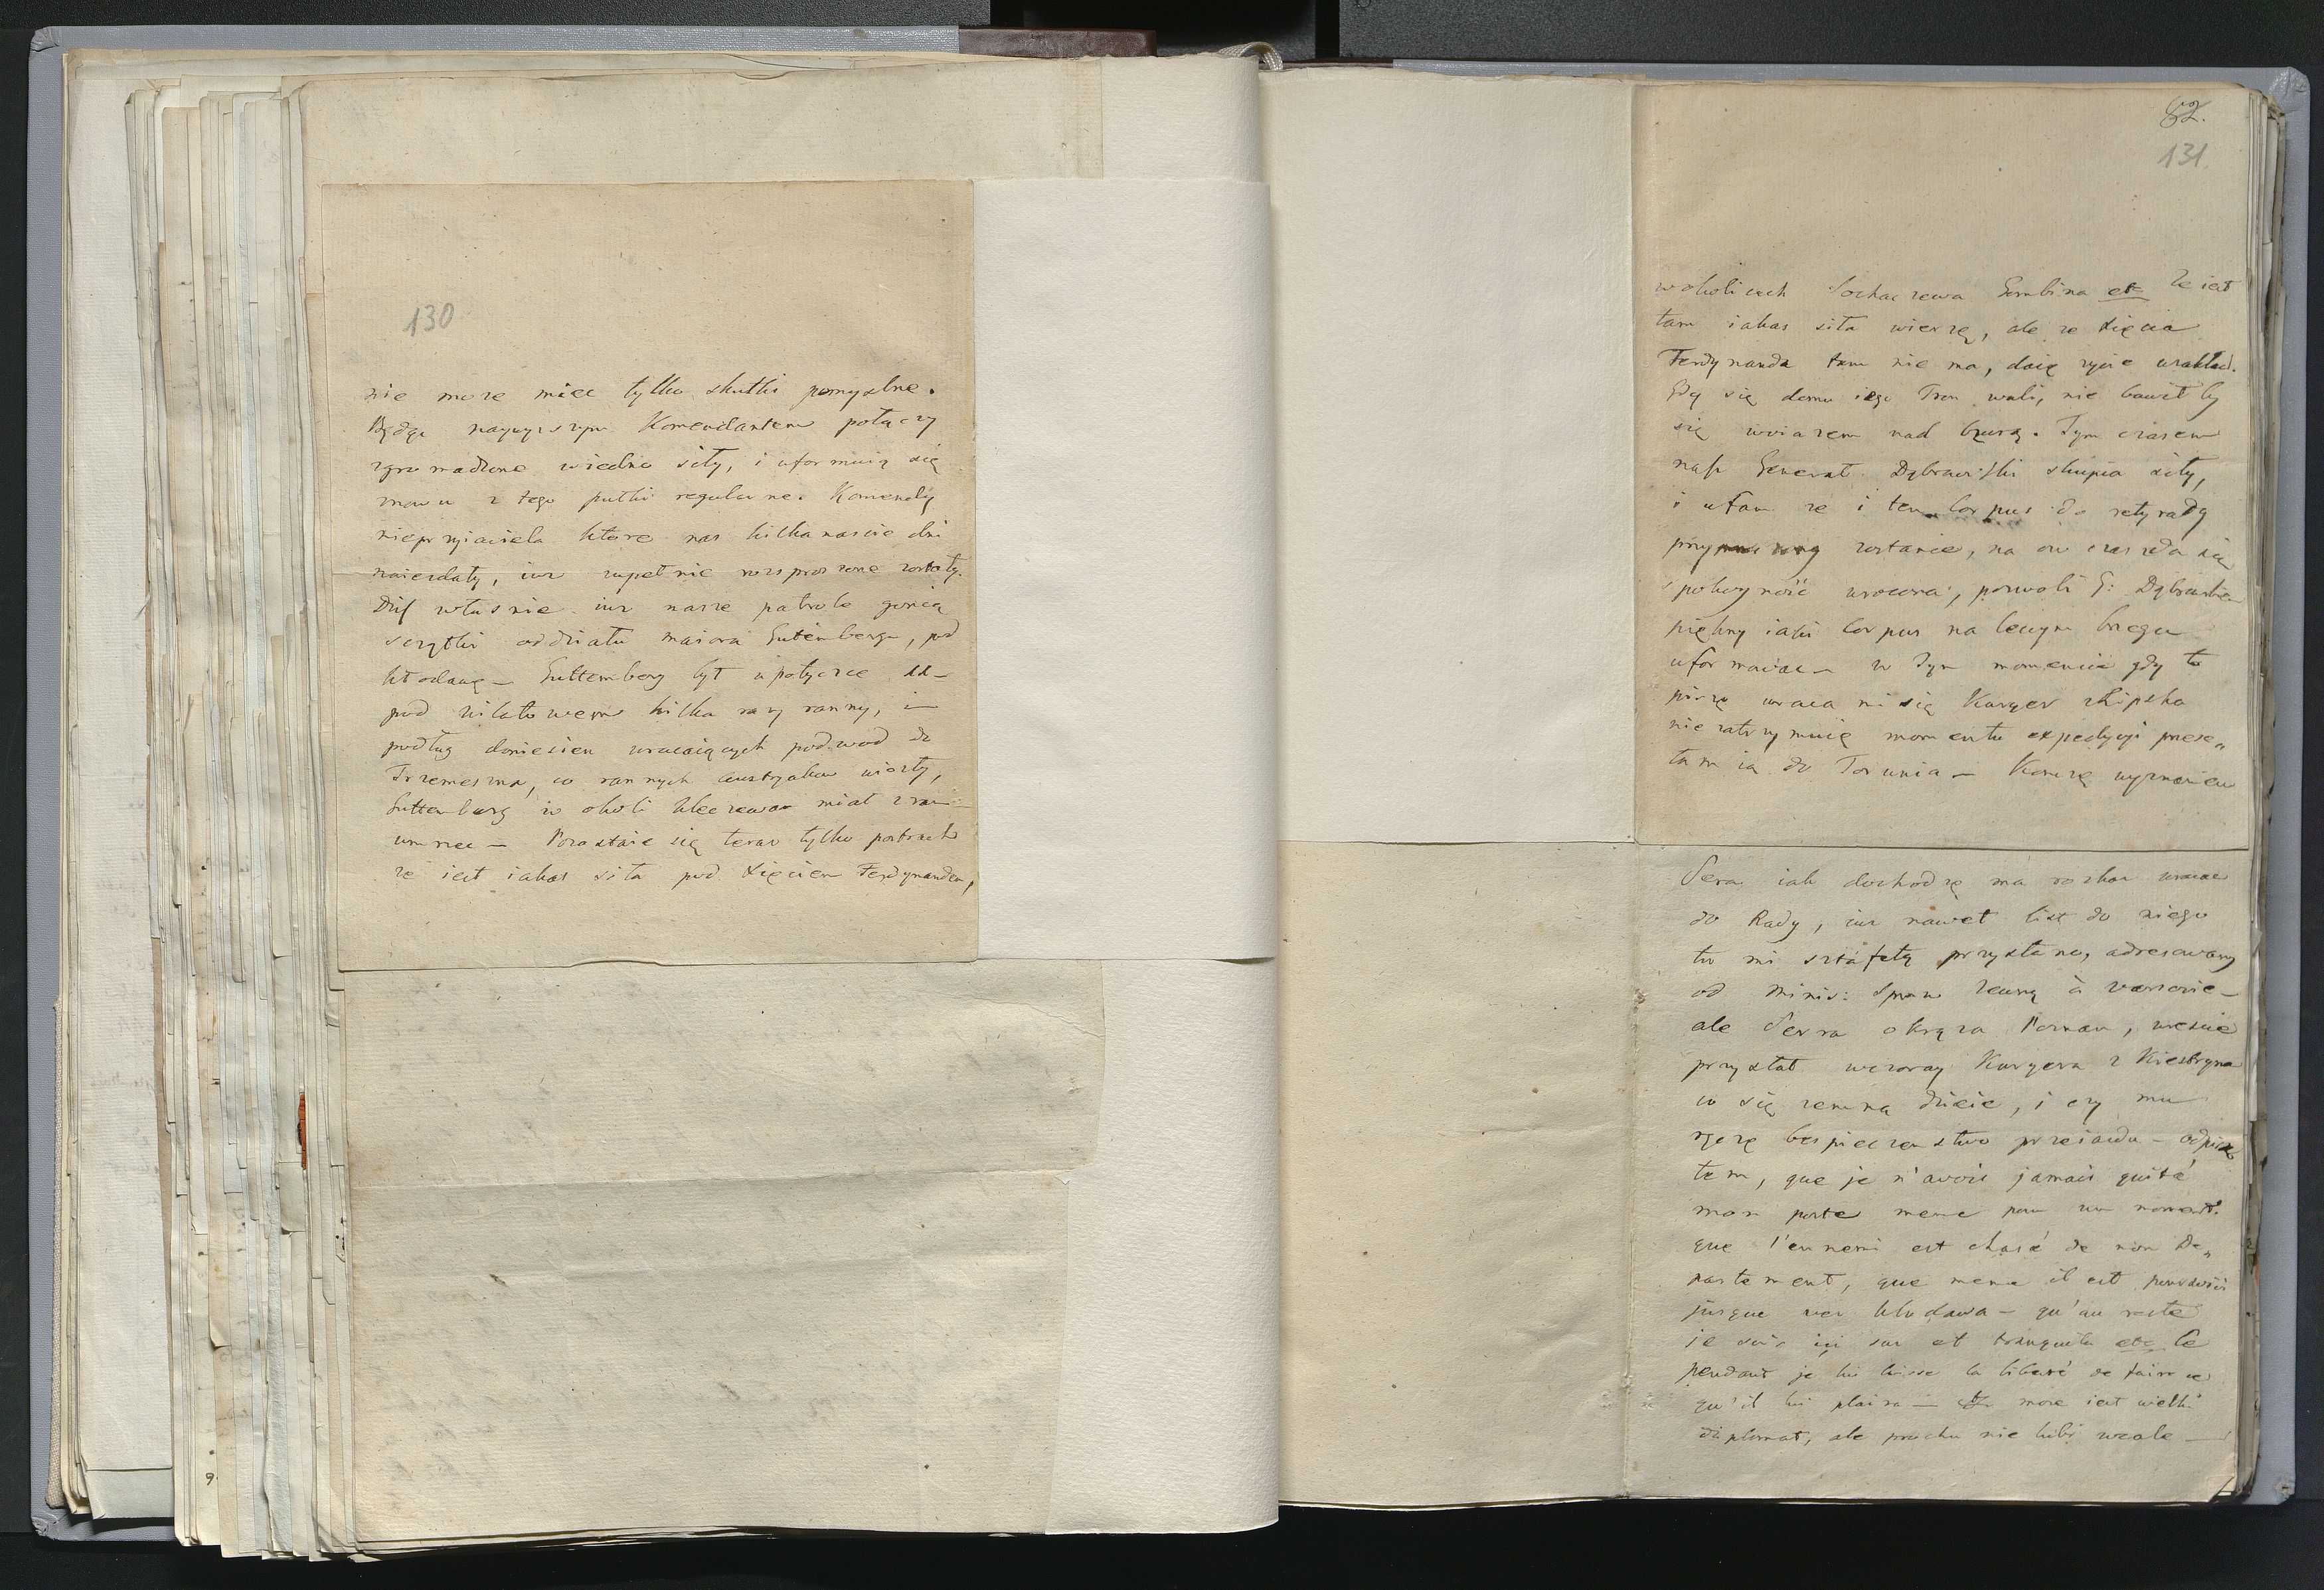 130
nie może mieć tylko skutki pomyslne.
Będąc naywyższym Komendantem połączy
zgromadzone wiedno siły, i uformuią się
znowu z tego pułki regularne. Komendy
nieprzyiaciela ktore nas kilkanascie dni
naiezdały, iuz zupełnie rozsproszone zostały.
Dziś własnie iuz nasze patrole gonią
szczątki oddziału maiora Gutemberga, pod
Kłodawę — Guttemberg był w potyczce
pod Wilatowem kilka razy ranny, i
podług doniesien wracaiących podwod do
Trzemeszna, co rannych Austryaków wiozły,
Guttemberg w okoli Kleczewa miał z ran
umrzec — Pozostaie się teraz tylko postrach
ze iest iakas siła pod Xięciem Ferdynandem,
82.
131.
w okolicach Sochaczewa Gembina etc ze iest
tam iakas siła wierzę, ale ze Xięcia
Ferdynanda tam nie ma, daię zycie w zakład.
Gdy się domu iego Tron wali, nie bawił by
się wiazem nad Bzurą. Tym czasem
nasz Generał Dąbrowski skupia siły,
i ufam ze i ten corpus do retyrady
zostanie, na ow czas zda się
spokoynosć wrocona, pozwoli G: Dąbrowskiemu
piękny iaki corpus na lewym brzegu
uformować — w Tym momencie gdy to
piszę wraca mi się Kuryer z Lipska
nie zatrzymuię momentu expedycyi przese„
łam ią do Torunia — Koncze wyznaniem
Serra iak dochodzę ma rozkaz wracac
do Rady, iuz nawet list do niego
tu mi sztafetą przysłano, adresowany
od Minis: Spraw Zewną à Varsovie —
ale Serra okrąza Poznan, wrescie
przysłał wczoray Kuryera z Kiestryna
co się zemną dzieie, i czy mu
ręczę bespieczenstwo przeiazdu — odpisa
łem, que je n'avois jamais quité
mon poste meme pour un moment.
que l'ennemi est chasé de mon De„
partement, que meme il est poursuivi
jusque ver Klodawa — qu'au reste
je suis ici sur et tranquile etc Ce
pendant je lui laisse la liberté de faire ce
qu'il lui plaira — moze iest wielki
diplomat, ale prochu nie lubi wcale —